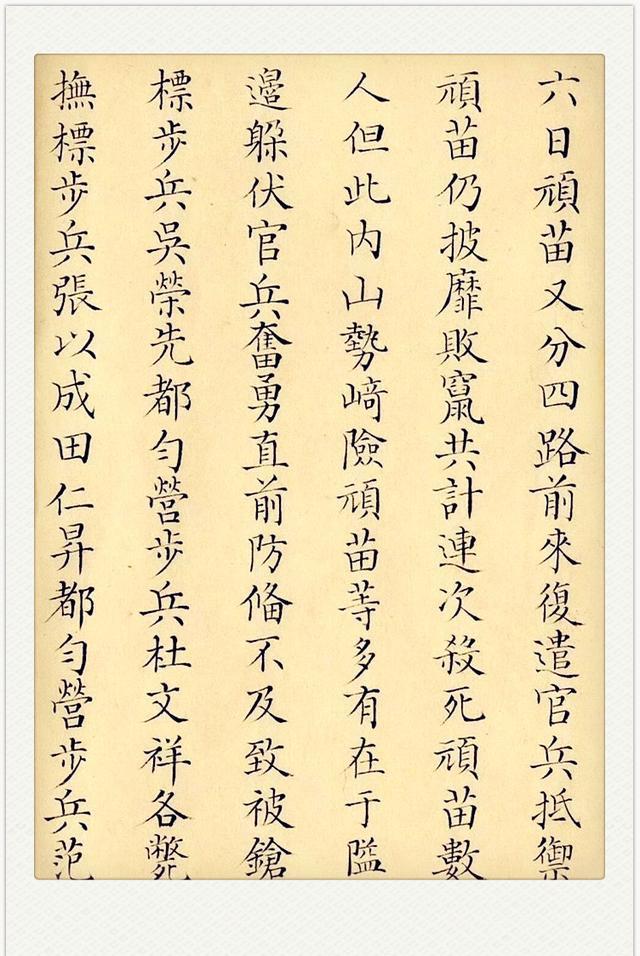 六日頑苗又分四路前來復遣官兵抵禦
頑苗仍披靡敗竄共計連次殺死頑苗數
人但此内山勢﨑險頑苗等多有在于隘
邉躲伏官兵奮勇直前防俻不及致被鎗
標步兵吳榮先都匀營步兵杜文祥各斃
撫標步兵張以成田仁昇都匀營步兵范